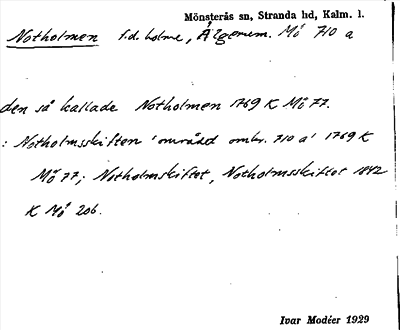 Mönsterås sn, Stranda hd, Kalm. l.
Notholmen f.d. holme, Ålgerum. Mö 710 a
den så kallade Notholmen 1769 K Mö 77.
: Notholmsskiften 'området omkr. 710 a' 1769 K
Mö 77; Notholmskiftet, Notholmsskiftet 1842
K Mö 206.
Ivar Modéer 1929